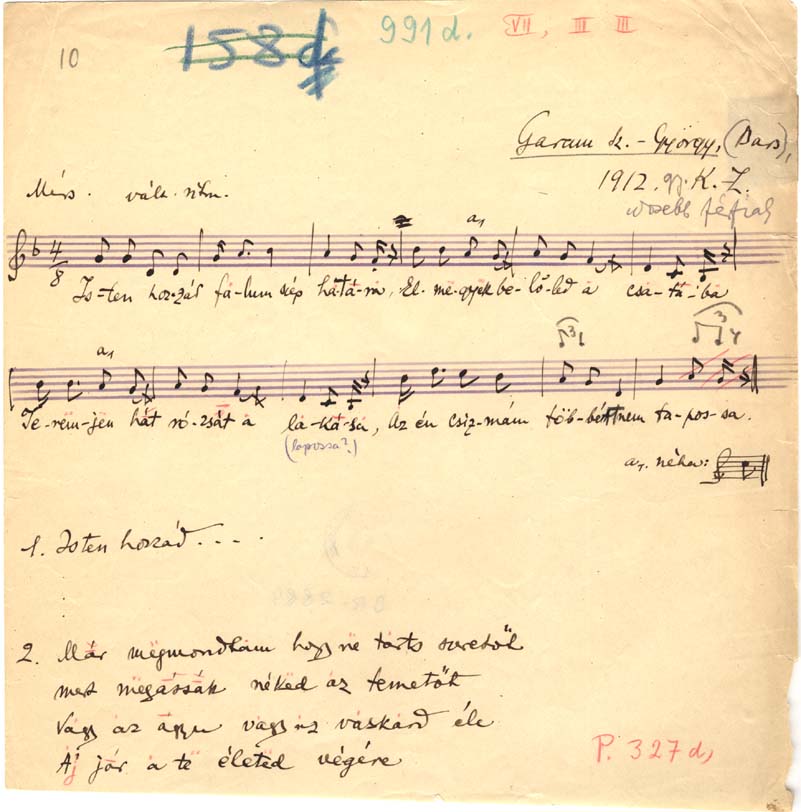 10 158d. 991d. VII, III III
Garam sz.-György, (Bars),
1912. gy. K. Z.
férfiak
Mérs. vált. ritm.
a₁
4
8
Is-ten hoz-zád fa-lum szép ha-tá-ra, El-me-gyek be-lő-led a csa-tá-ba
3 3
a₁
Te-rem-jen hát ró-zsát a la-ká-sa, Az én csiz-mám töb-bé nem ta-pos-sa.
(lapossa?)
a₁. néha:
1. Isten hozzád . . . .
2. Már mëgmondtam hogy në tarts szeretőt
mert mëgássák néked az temetőt
Vagy az ágyu vagy az vaskard éle
Áj jár a të életed végére
P. 327 d,